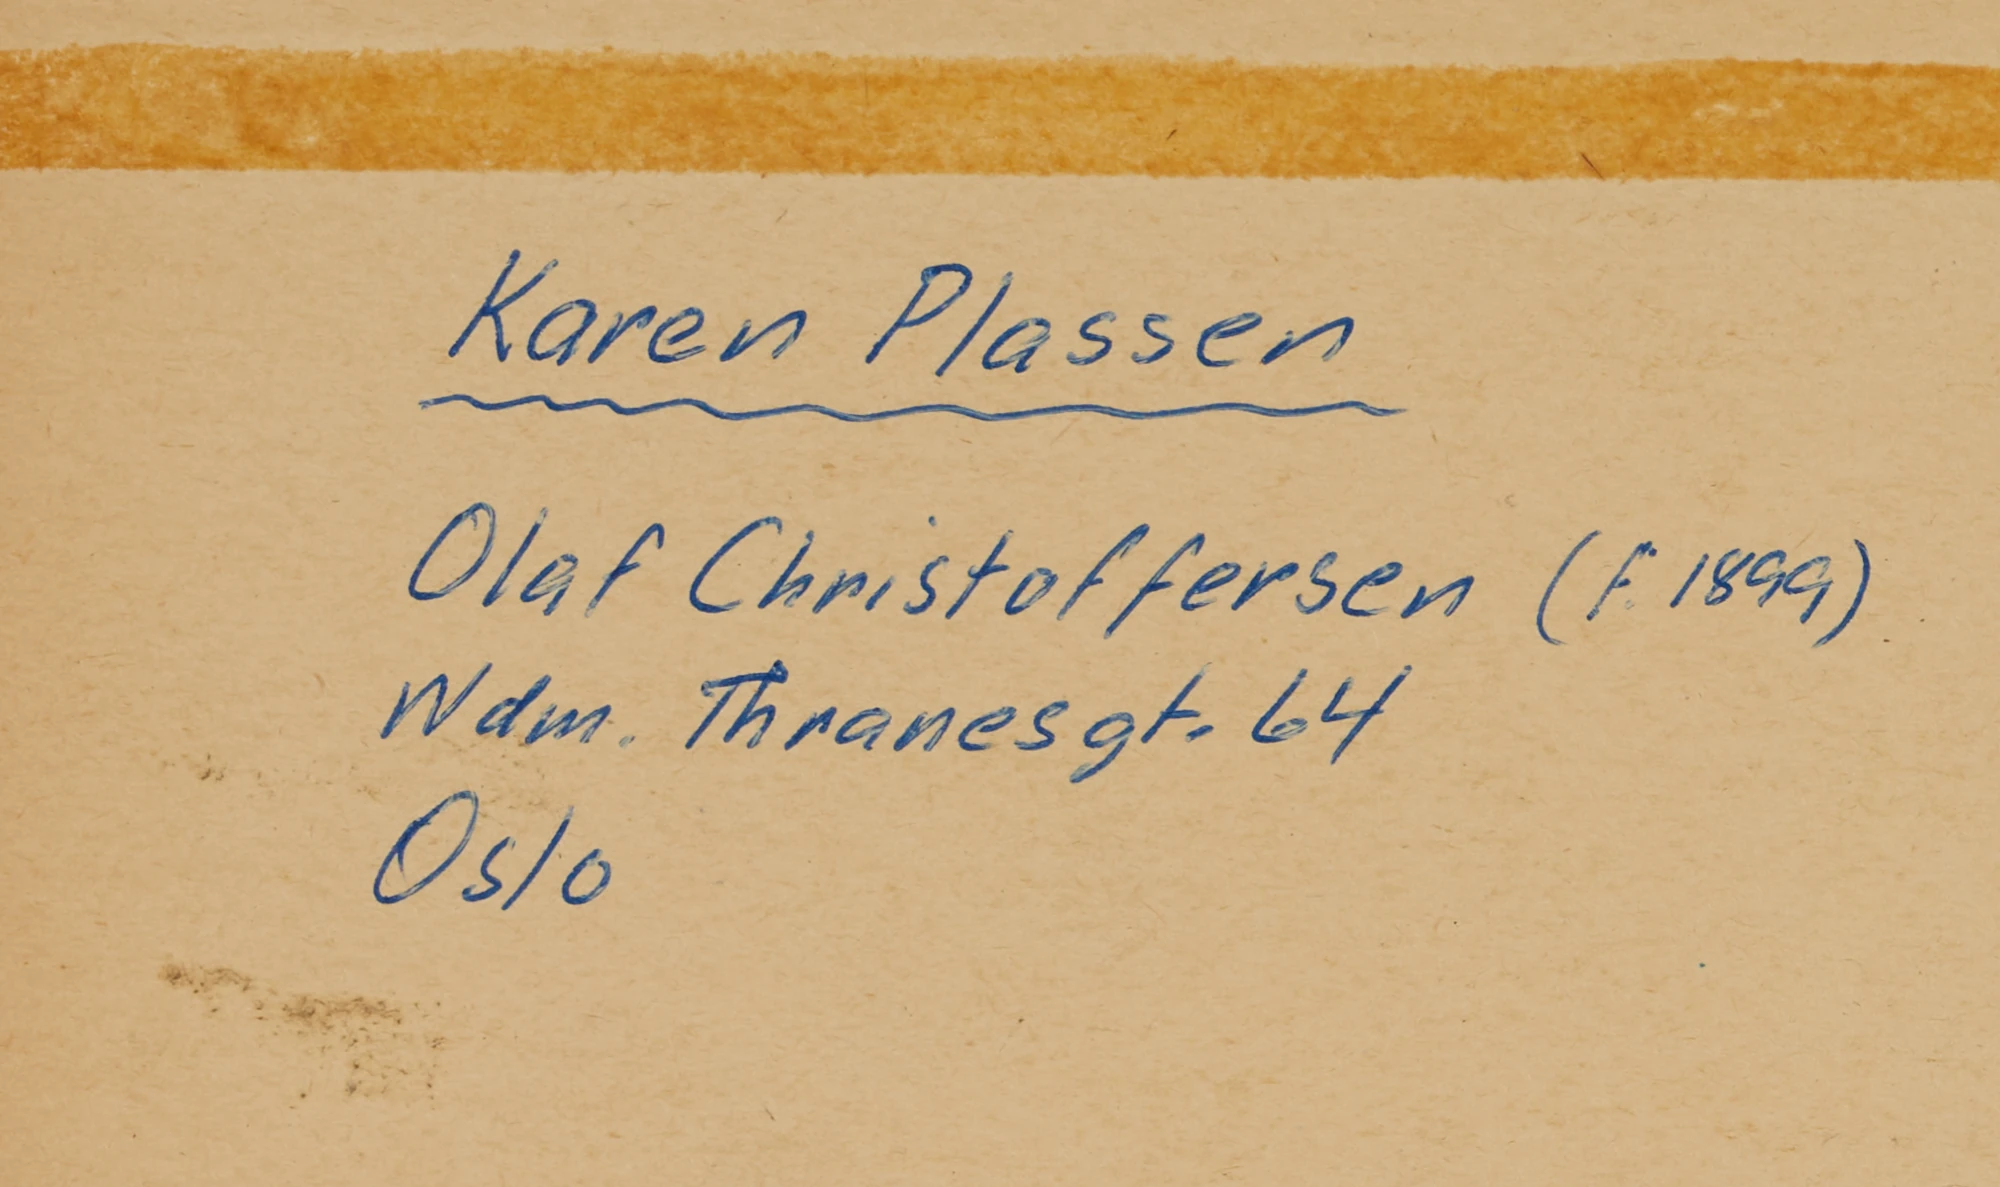 Karen Plassen
Olaf Christoffersen (f. 1899)
Wdm. Thranesgt. 64
Oslo